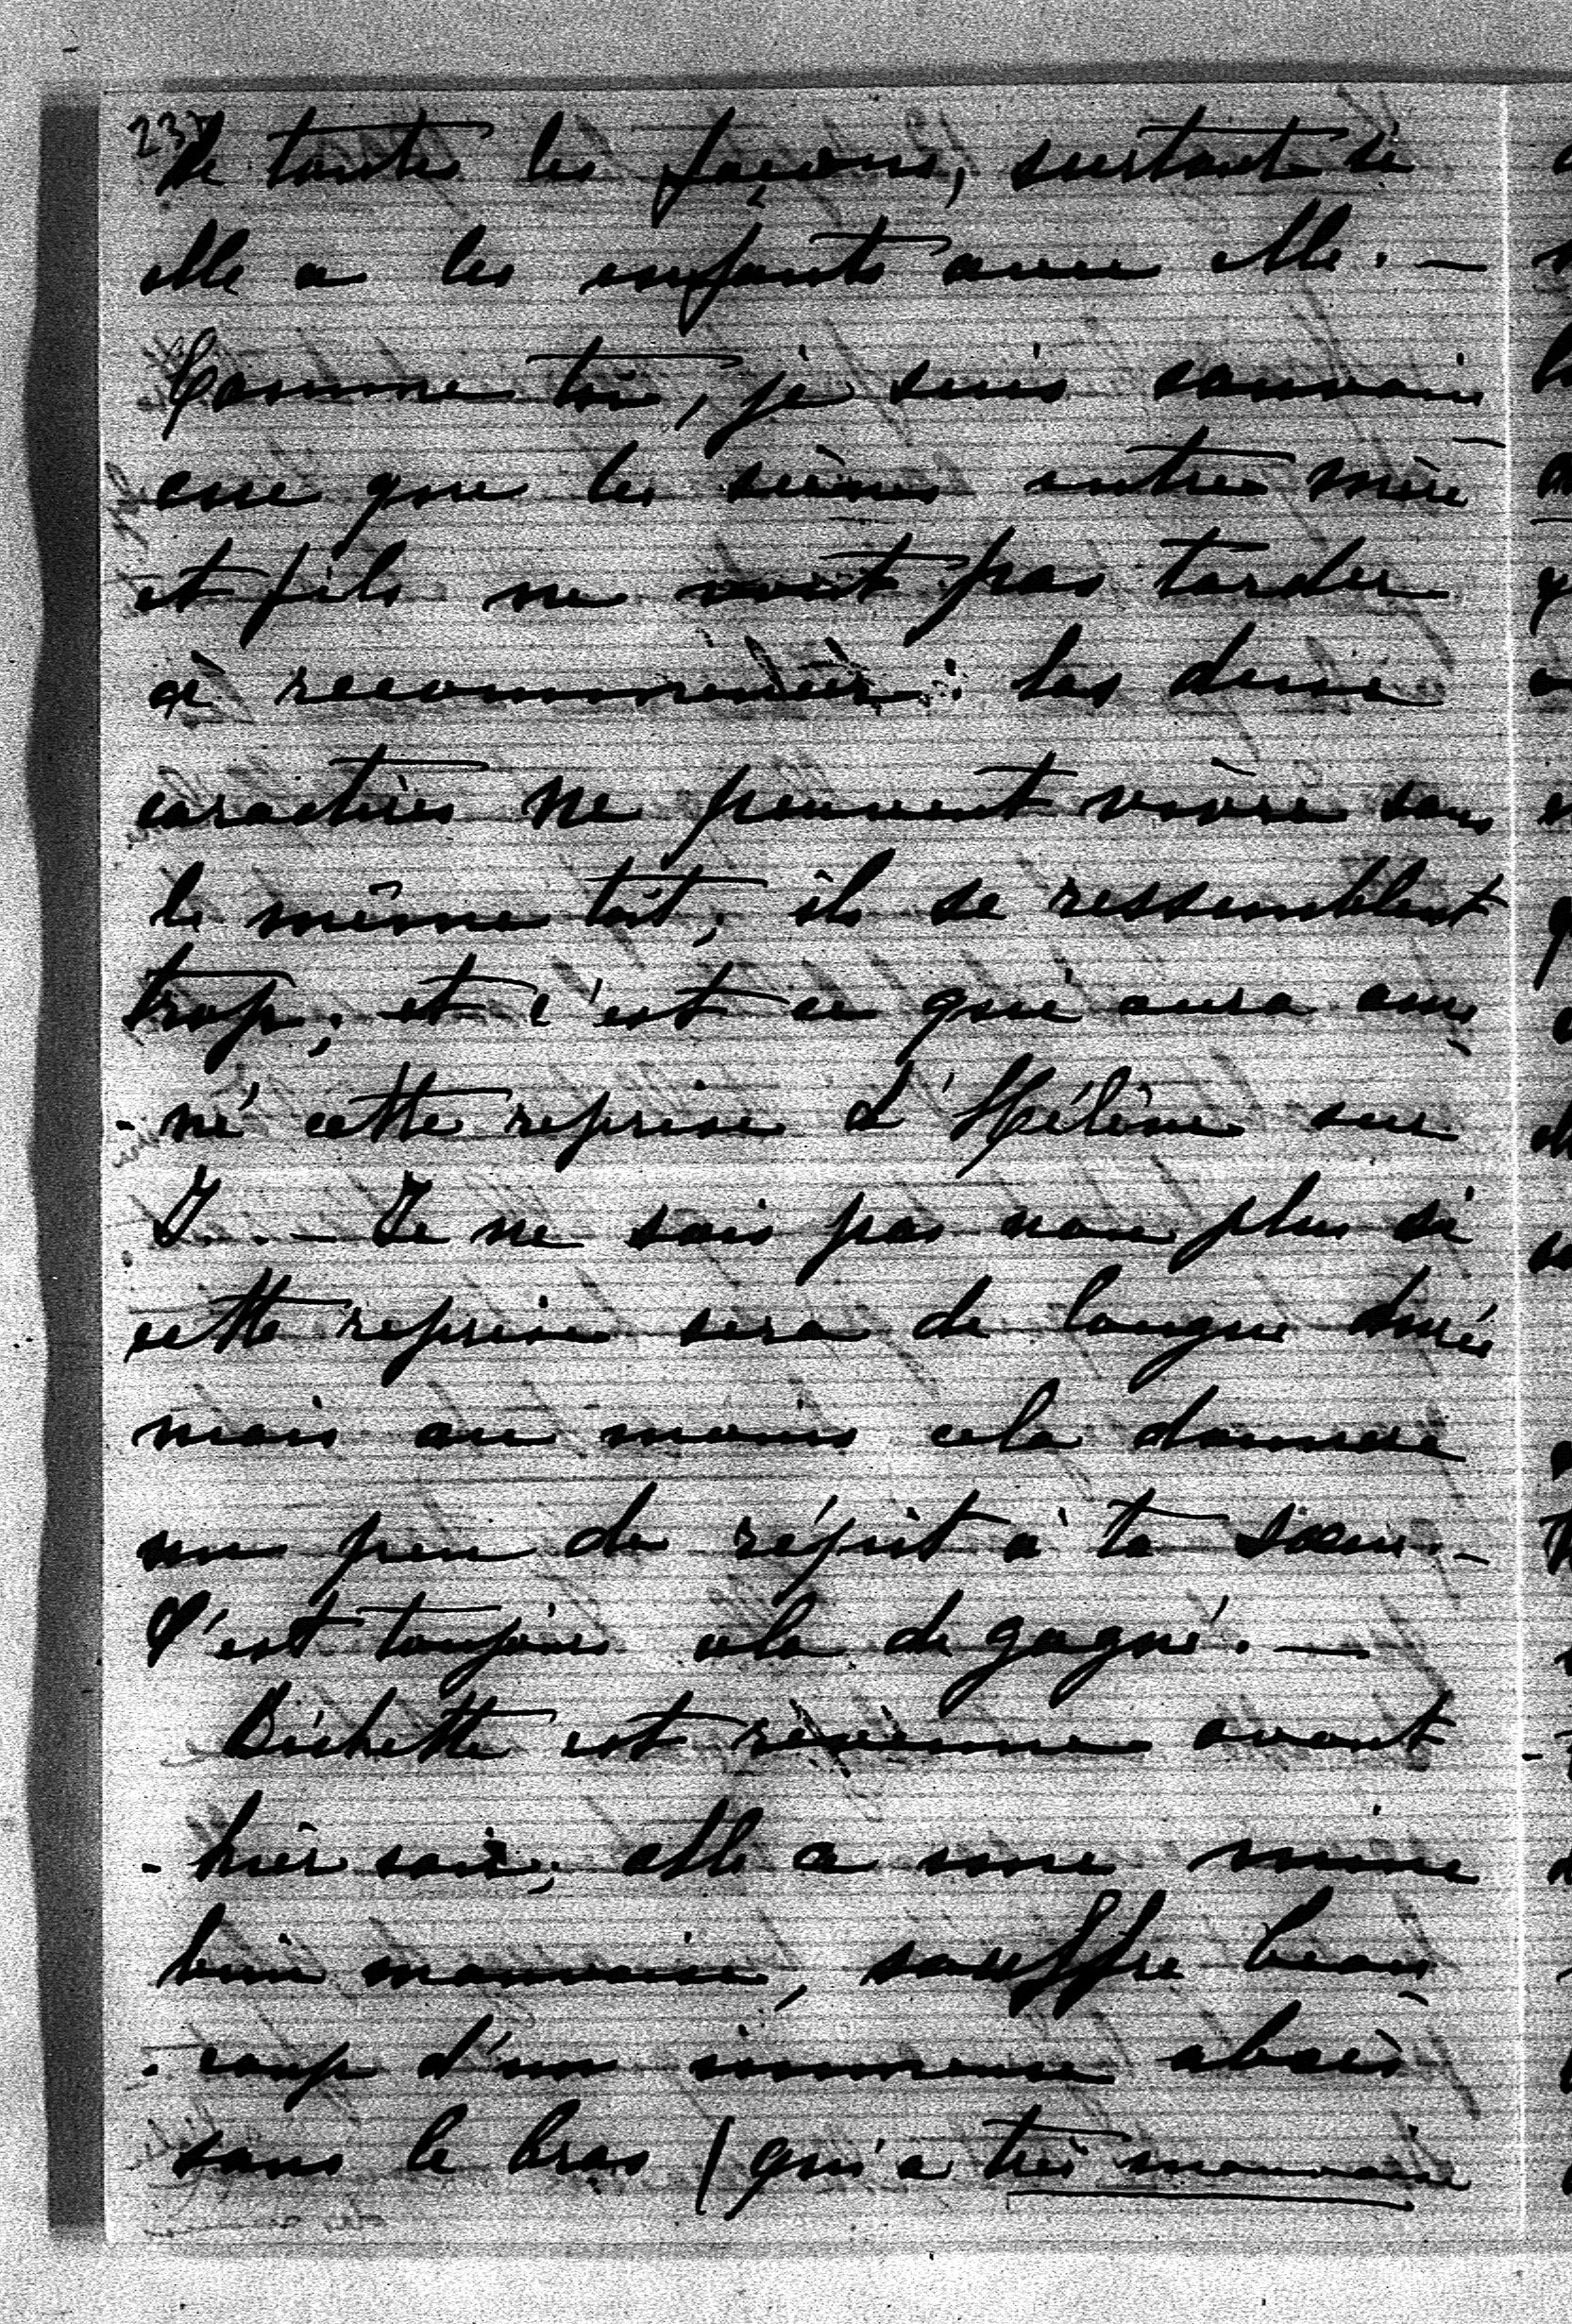 237
de toutes les façons, surtout si
elle a les enfants avec elle. —
Comme toi, je suis convain-
cue que les scènes entre mère
et fils ne vont pas tarder
à recommencer : les deux
caractères ne peuvent vivre sous
le même toit, ils se ressemblent
trop, et c'est ce qui aura ame-
-né cette reprise d'Hélène sur
J... — Je ne sais pas non plus si
cette reprise sera de longue durée
mais au moins cela donnera
un peu de répit à ta sœur. —
C'est toujours cela de gagné. —
Bichette est revenue avant
-hier soir, elle a une mine
bien mauvaise, souffre beau-
-coup d'un immense abcès
sous le bras (qui a très mauvaise